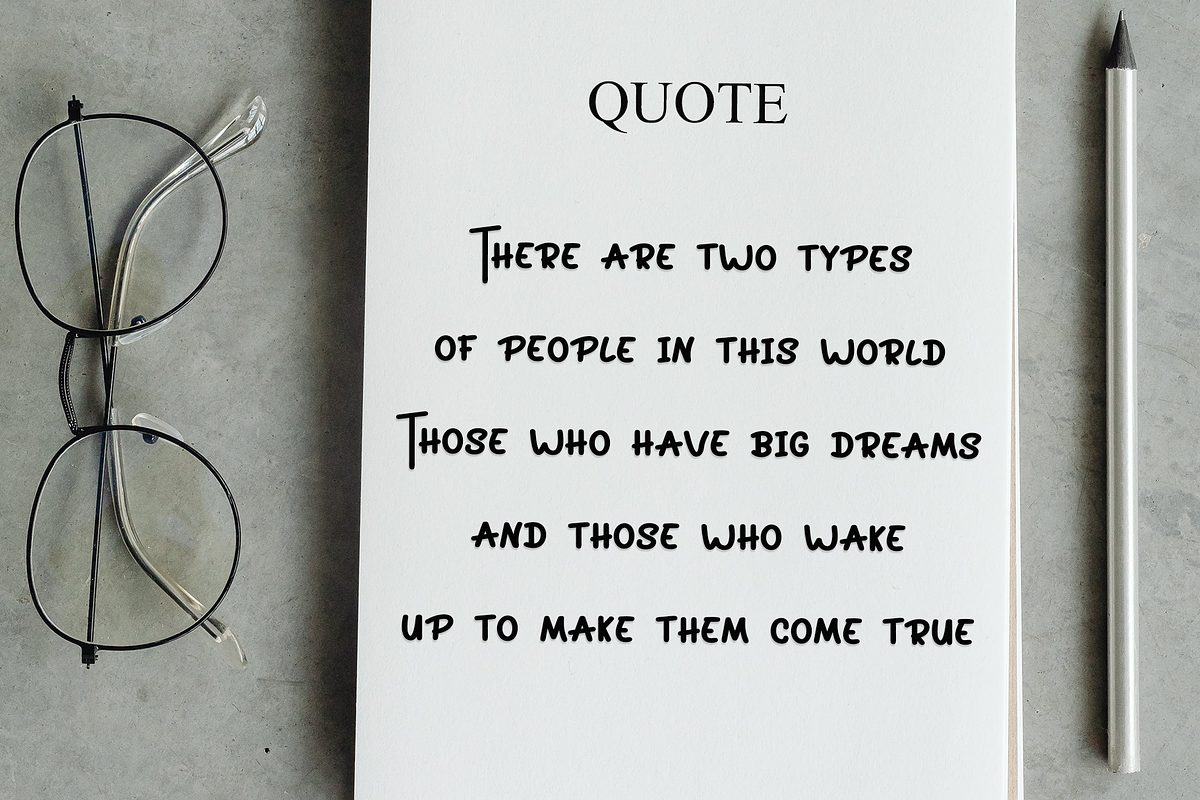 QUOTE
There are two types
of people in this world
Those who have big dreams
and those who wake
up to make them come true